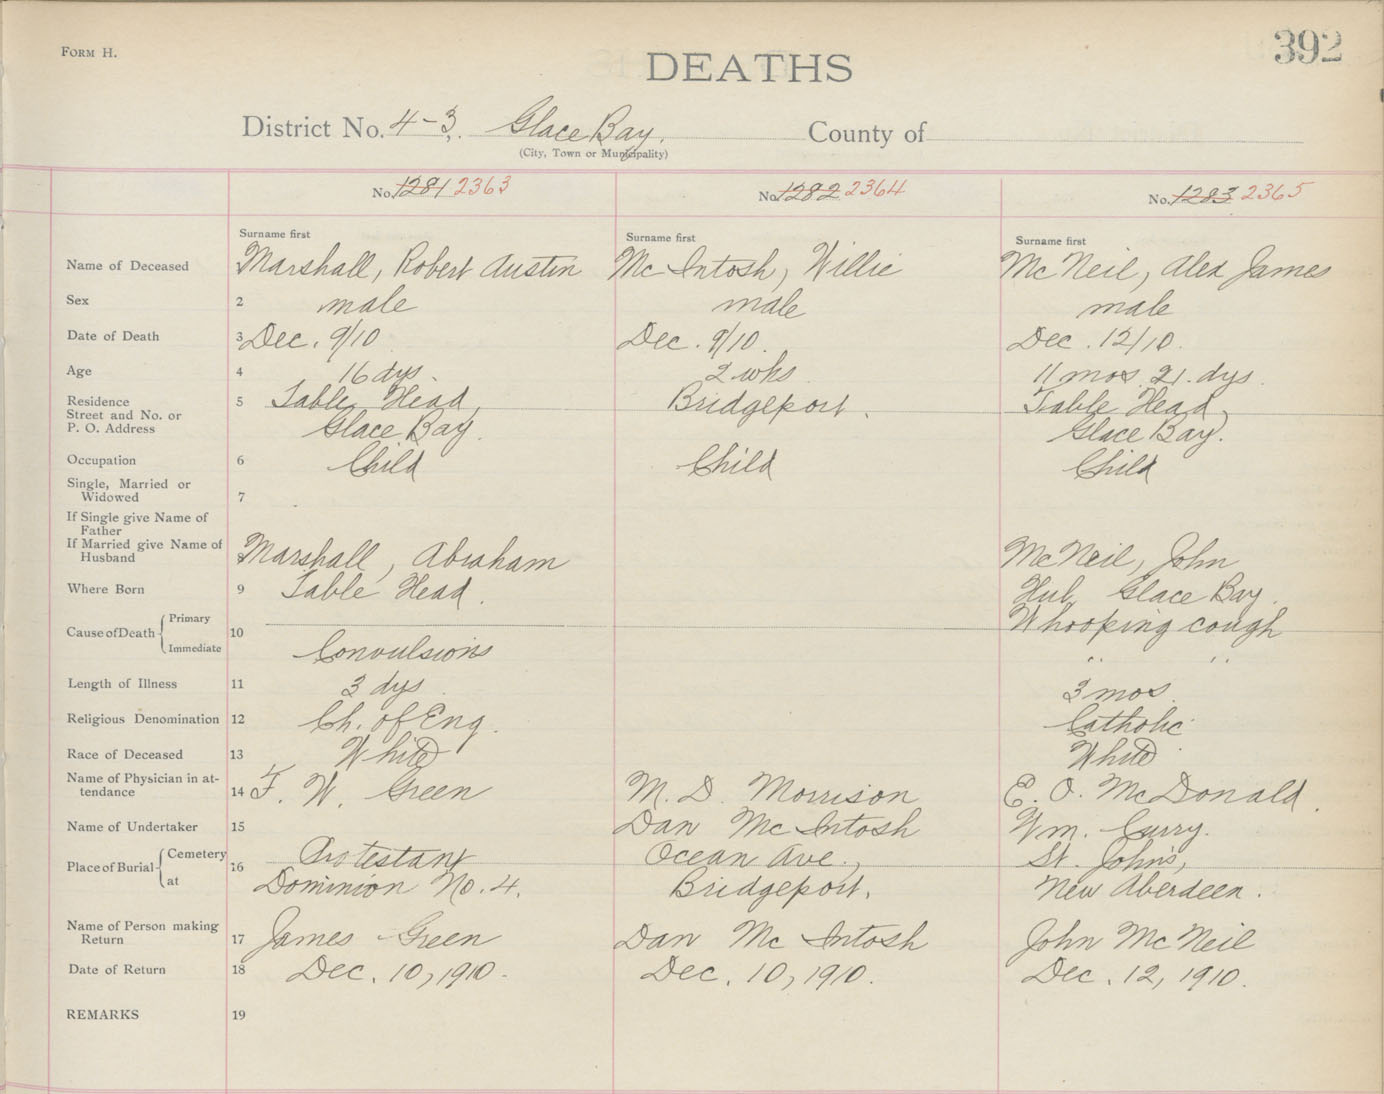 FORM H.
392
DEATHS
District No. 4-3. Glace Bay. County of
(City, Town or Municipality)
No. 1281 2363 No. 1282 2364 No. 1283 2365
Surname first Surname first Surname first
Name of Deceased Marshall, Robert Austin Mc Intosh, Willie Mc Neil, Alex James
Sex 2 male male male
Date of Death 3 Dec. 9/10 Dec. 9/10. Dec. 12/10.
Age 4 16 dys. 2 wks 11 mos. 21. dys.
Residence 5 Table Head, Bridgeport. Table Head,
Street and No. or
P. O. Address Glace Bay. Glace Bay.
Occupation 6 Child Child Child
Single, Married or
Widowed 7
If Single give Name of
Father
If Married give Name of
Husband 8 Marshall, Abraham McNeil, John
Where Born 9 Table Head. Hub, Glace Bay.
Cause of Death Primary 10 Whooping cough
Immediate Convulsions " "
Length of Illness 11 3 dys 3 mos
Religious Denomination 12 Ch. of Eng. Catholic
Race of Deceased 13 White White
Name of Physician in at-
tendance 14 F. W. Green M. D. Morrison E. O. McDonald.
Name of Undertaker 15 Dan Mc Intosh Wm. Curry.
Place of Burial Cemetery 16 Protestant Ocean Ave., St. John's,
at Dominion No. 4. Bridgeport. New Aberdeen.
Name of Person making
Return 17 James Green Dan Mc Intosh John Mc Neil
Date of Return 18 Dec. 10, 1910. Dec. 10, 1910. Dec. 12, 1910.
REMARKS 19